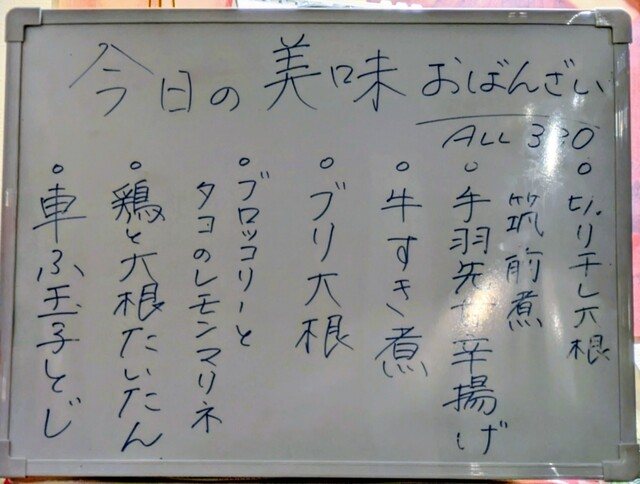 今日の美味おばんざい
ALL 380
○切り干し大根
筑前煮
○手羽先甘辛揚げ
○牛すき煮
○ブリ大根
○ブロッコリーと
タコのレモンマリネ
○鶏と大根たいたん
○車ふ玉子とじ